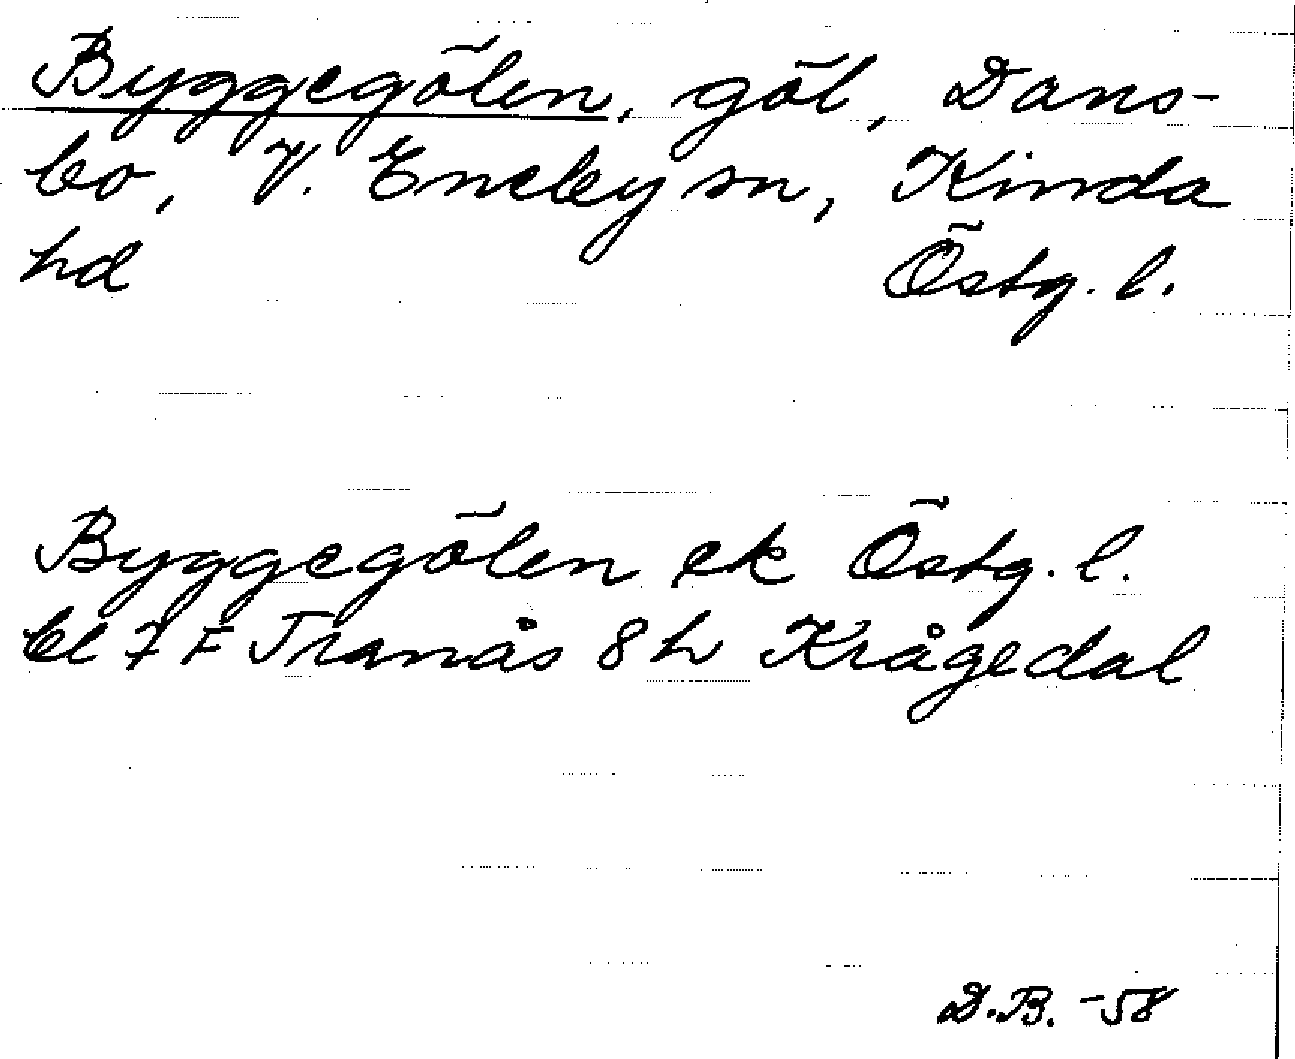 Byggegölen, göl, Dans-
bo, V. Eneby sn, Kinda
hd Östg. l.
Byggegölen ek Östg. l.
bl 7 F Tranås 8 h Krågedal
D.B. -58